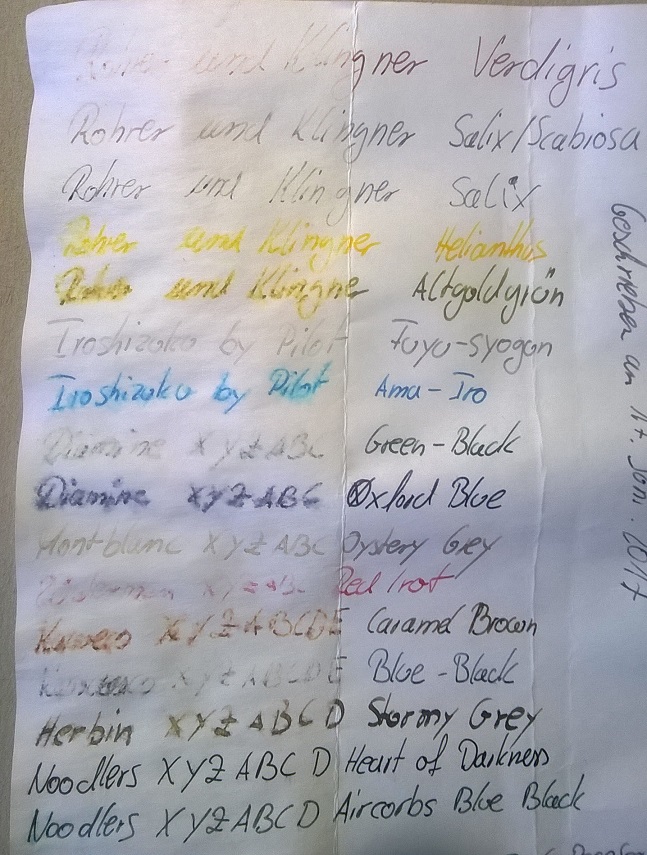 Rohrer und Klingner Verdigris
Rohrer und Klingner Salix/Scabiosa
Rohrer und Klingner Salix
Rohrer und Klingner Helianthus
Rohrer und Klingner Altgoldgrün
Iroshizoku by Pilot Fuyu-syogun
Iroshizoku by Pilot Ama-Iro
Diamine XYZ ABC Green-Black
Diamine XYZ ABC Oxford Blue
Montblanc XYZ ABC Oystery Grey
XYZ ABC Red
Kaweco XYZ ABCDE Caramel Brown
XYZ ABCDE Blue-Black
Herbin XYZ ABCD Stormy Grey
Noodlers XYZ ABC D Heart of Darkness
Noodlers XYZ ABCD Aircorbs Blue Black
Geschrieben am 17. Juni. 2017